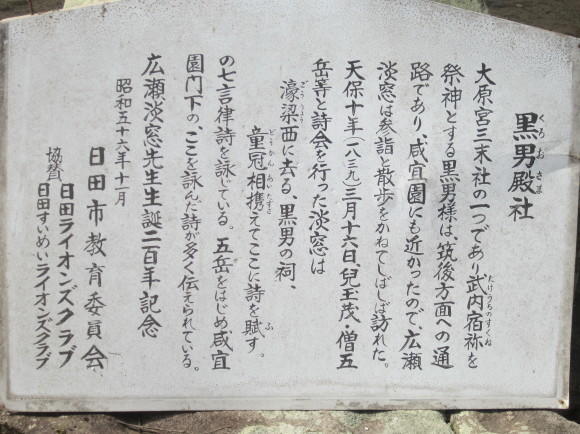 黒男殿社
くろおさま
大原宮三末社の一つであり武内宿祢を
たけうちのすくね
祭神とする黒男様は、筑後方面への通
路であり、咸宜園にも近かったので、広瀬
淡窓は参詣と散歩をかねてしばしば訪れた。
天保十年(一八三九)三月十六日、兒玉茂・僧五
岳等と詩会を行った淡窓は
濠梁西に去る、黒男の祠、
ごうりょう
童冠相携えてここに詩を賦す。
どうかんあいたずさ ふ
の七言律詩を詠じている。五岳をはじめ咸宜
園門下の、ここを詠んだ詩が多く伝えられている。
広瀬淡窓先生生誕二百年記念
昭和五十六年十一月
日田市教育委員会
協賛 日田ライオンズクラブ
日田すいめいライオンズクラブ